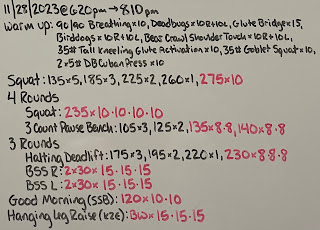 11/28/2023@620pm→810pm
Warm up: 90/90 Breathing×10, Deadbugs×10R+10L, Glute Bridge×15,
Birddogs×10R+10L, Bear Crawl Shoulder Touch×10R+10L,
35# Tall Kneeling Glute Activation×10, 35# Goblet Squat×10,
2×5# DB Cuban Press×10
Squat: 135×5, 185×3, 225×2, 260×1, 275×10
4 Rounds
Squat: 235×10·10·10·10
3 Count Pause Bench: 105×3, 125×2, 135×8·8, 140×8·8
3 Rounds
Halting Deadlift: 175×3, 195×2, 220×1, 230×8·8·8
BSS R: 2×30×15·15·15
BSS L: 2×30×15·15·15
Good Morning (SSB): 120×10·10
Hanging Leg Raise (K2E): BW×15·15·15